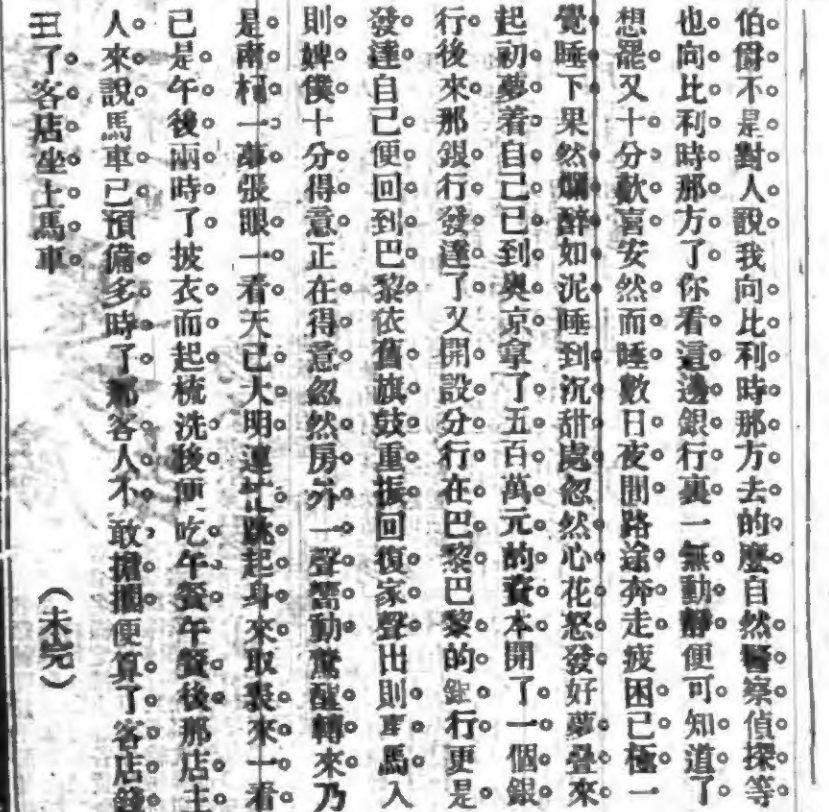 伯爵不是對人說我向比利時那方去的麼自然警察偵探等
也向比利時那方了你看這邊銀行裏一無動靜便可知道了
想罷又十分歡喜安然而睡數日夜間路途奔走疲困已極一
覺睡下果然爛醉如泥睡到沉甜處忽然心花怒發好夢疊來
起初夢着自己已到奧京拿了五百萬元的資本開了一個銀
行後來那銀行發達了又開設分行在巴黎巴黎的銀行更是
發達自己便回到巴黎依舊旗鼓重振回復家聲出則車馬入
則婢僕十分得意正在得意忽然房外一聲響動驚醒轉來乃
是南柯一夢張眼一看天已大明連忙跳起身來取表來一看
已是午後兩時了披衣而起梳洗後便吃午餐午餐後那店主
人來說馬車已預備多時了那客人不敢擔擱便算了客店錢
了客店坐上馬車
(未完)